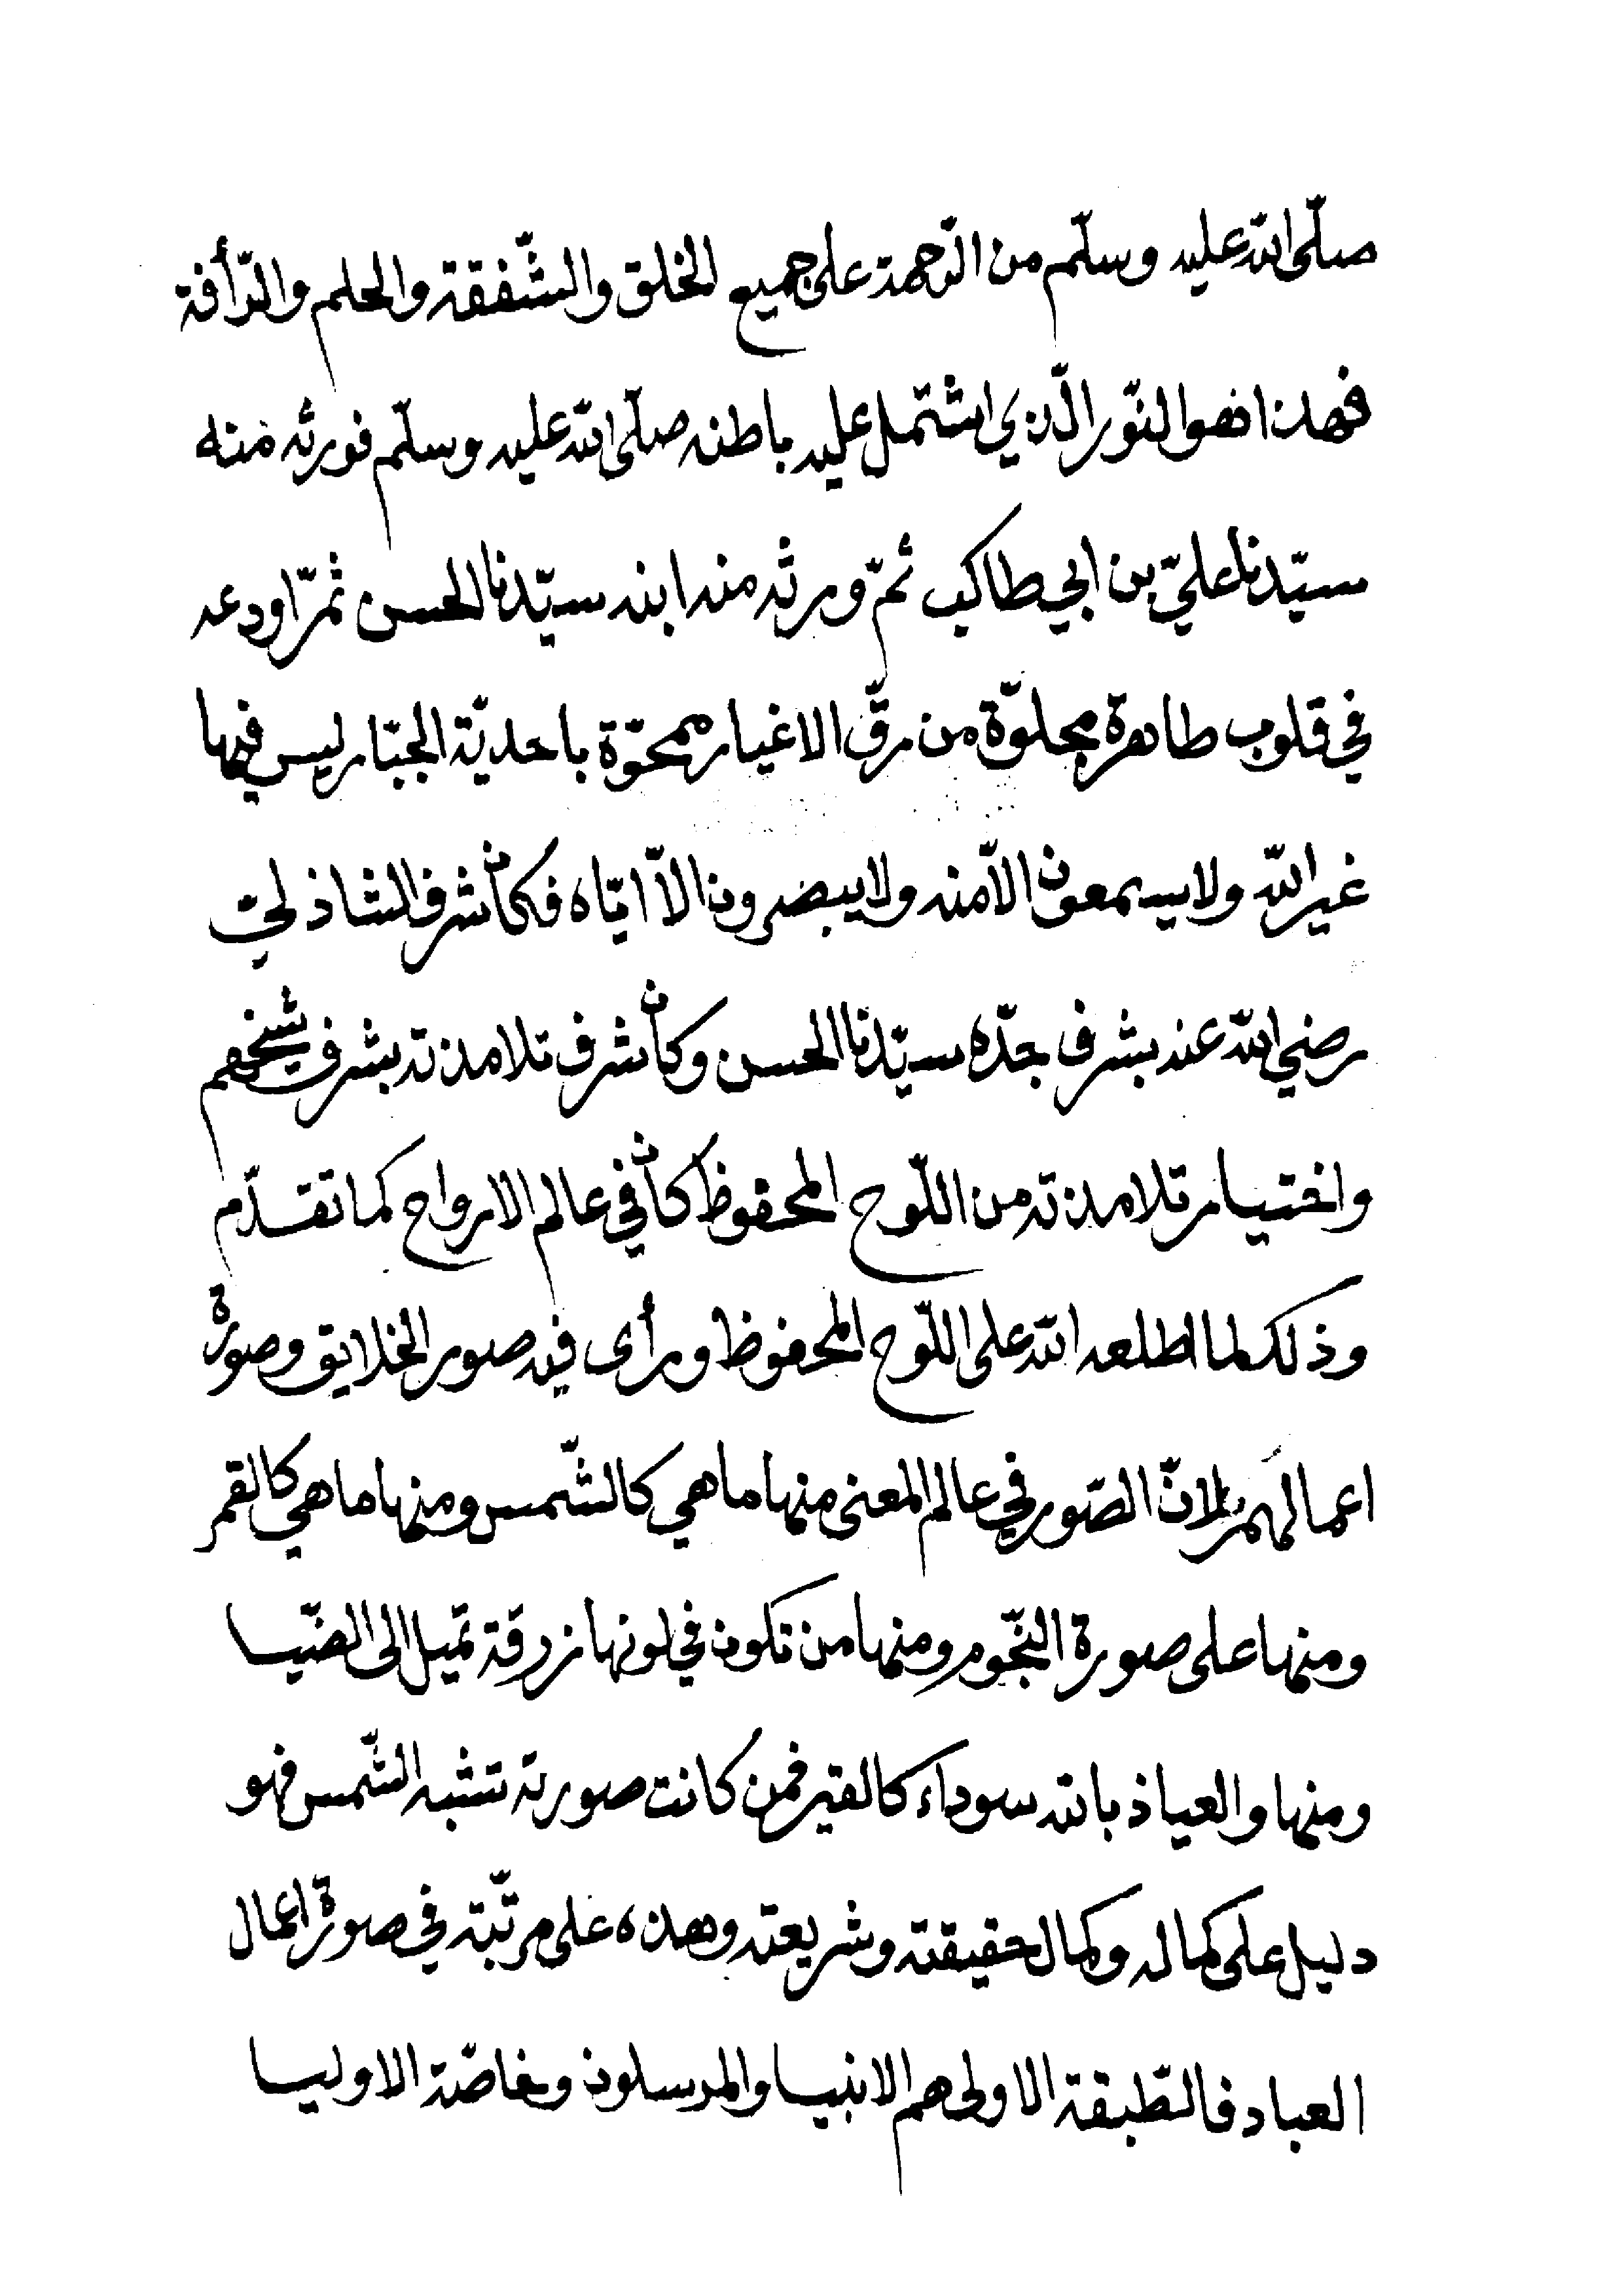 صلّى الله عليه وسلّم من الرّحمة على جميع الخلق والشّفقة والحلم والرّأفة
فهذا فهو النّور الّذي اشتمل عليه باطنه صلّى الله عليه وسلّم فورثه منه
سيّدنا عليّ بن ابي طالب ثمّ ورثه منه ابنه سيّدنا الحسن ثمّ اودعه
في قلوب طاهرة مجلوّة من رقّ الاغيار ممحوّة باحديّة الجبّار ليس فيها
غير الله ولا يسمعون الّا منه ولا يبصرون الّا ايّاه فكان شرف الشاذليّ
رضي الله عنه بشرف جدّه سيّدنا الحسن وكان شرف تلامذته بشرف شيخهم
واختيار تلامذته من اللّوح المحفوظ كان في عالم الارواح كما تقدّم
وذلك لما اطلعه الله على اللّوح المحفوظ ورأى فيه صور الخلايق وصورة
اعمالهم لانّ الصّور في عالم المعنى منها ما هي كالشّمس ومنها ما هي كالقمر
ومنها على صورة النّجوم ومنها من تكون في لونها زرقة تميل الى الضّيا
ومنها والعياذ بالله سوداء كالقير فمن كانت صورته تشبه الشّمس فهو
دليل على كماله وكمال حقيقته وشريعته وهذه على مرتّبة في صورة اعمال
العباد فالطّبقة الاولى هم الانبيا والمرسلون وخاصّة الاوليا